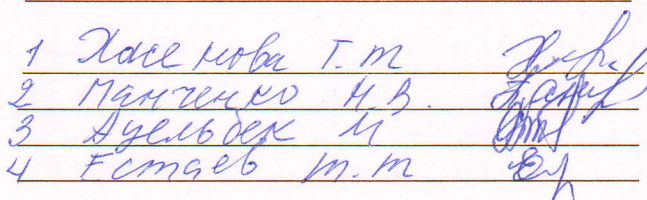 1 Хасенова Г.т
2 Манченко Н.В.
3 Ауельбек М
4 Естаев т.т